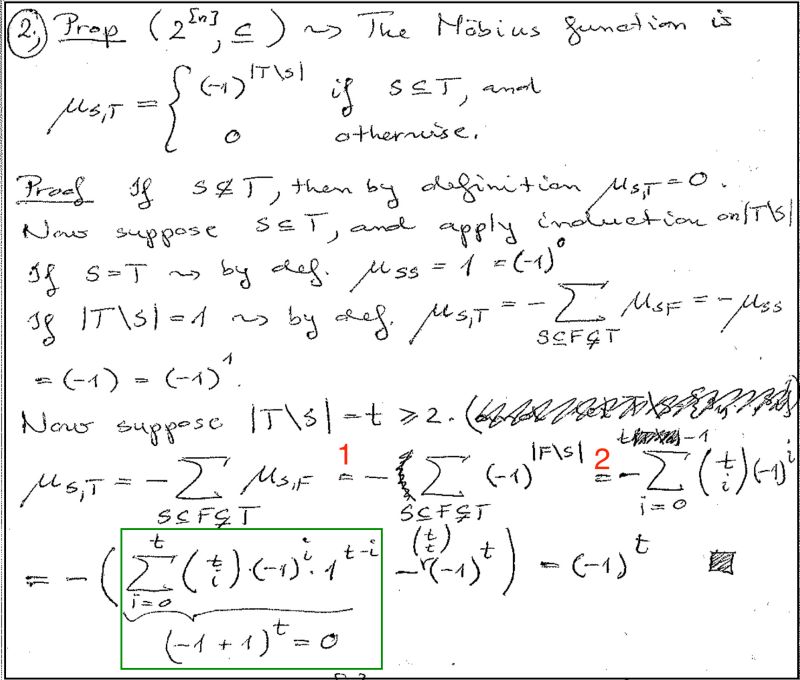 2., Prop (2^[n], ⊆) ⇝ The Möbius function is
μ_{S,T} = { (-1)^{|T\S|} if S⊆T, and
0 otherwise.
Proof If S⊈T, then by definition μ_{S,T} = 0.
Now suppose S⊆T, and apply induction on |T\S|
If S=T ⇝ by def. μ_{SS} = 1 = (-1)^0
If |T\S| = 1 ⇝ by def. μ_{S,T} = - ∑_{S⊆F⊊T} μ_{SF} = -μ_{SS}
= (-1) = (-1)^1.
Now suppose |T\S| = t ≥ 2. (
μ_{S,T} = - ∑_{S⊆F⊊T} μ_{S,F} =^1 - ∑_{S⊆F⊊T} (-1)^{|F\S|} =^2 - ∑_{i=0}^{t-1} (t i) (-1)^i
= - ( ∑_{i=0}^{t} (t i)·(-1)^i·1^{t-i} - (t t) (-1)^t ) = (-1)^t
(-1+1)^t = 0